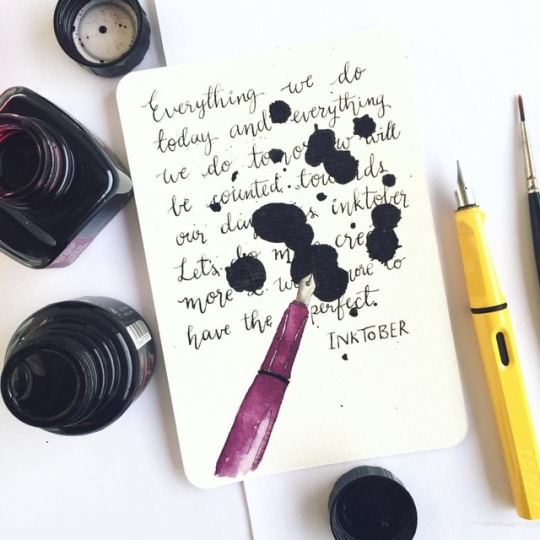 Everything we do
today and everything
we do tomorrow will
be counted towards
our inktober
Lets do
more to
have the perfect.
INKTOBER